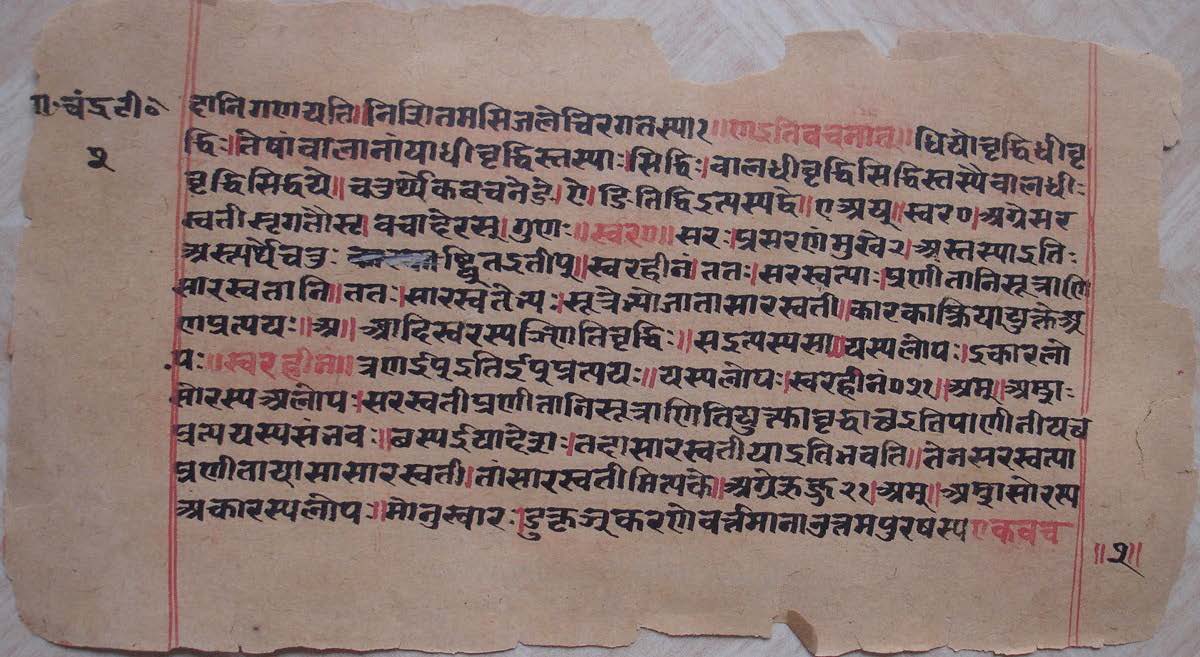 ग॰ चंद्रटी॰
२
हानिगणयति॥ निशितमसिजलेचिरगतस्पा१॥ एाऽतिवचनात्॥ धियोवृद्धिधीवृ
द्धिः॥ तेषांवालानांयाधीवृद्धिस्तस्याः। सिद्धिः। वालधीवृद्धिसिद्धिस्तस्यैवालधीः
वृद्धिसिद्धये॥ चतुर्थ्येकवचनेङे। ए। ङितिद्विऽत्यस्यद्वे॥ एअय्॥ स्वर०। अग्रेसर
स्वतीसृगतौसृ। वचादेरस्। गुणः॥ स्वर०॥ सरः। प्रसरणंमुखे२। अस्तस्याऽतिः
अस्त्यर्थेचतुः ष्ट्वितऽतीप्॥ स्वरहीनं। ततः। सरस्वत्याः। प्रणीतानिसूत्राणि
सारस्वतानि॥ ततः। सारस्वतेभ्यः। सूत्रेभ्योजातासारस्वती॥ कारकात्क्रियायुक्तेअ
णप्रत्ययः॥ अ॥ आदिस्वरस्यञ्णितिवृद्धिः॥ सइत्यस्यसा॥ यस्यलोपः। इकारलो
पः॥ स्वरहीनं॥ व्रणईप्ऽतिईप्प्रत्ययः॥ यस्यलोपः। स्वरहीनं०२१। अम्। अम्शा
सोरस्यअलोपः। सरस्वतीप्रणीतानिसूत्राणितियुत्क्तावृद्धाच्छऽतिपाणीतीयछ
प्रत्ययस्यसंभवः॥ छस्यईयादेशः। तदासारस्वतीयाऽतिभवति॥ तेनसरस्वत्या
प्रणीतायासासारस्वती। तांसारस्वतीमित्यके॥ अग्रेऋजु२१। अम्। अम्शसोरस्य
अकारस्यलोपः॥ मोनुस्वारः। डुकृञ्करणेवर्त्तमानाउत्तमपुरषस्यएकवच
॥२॥